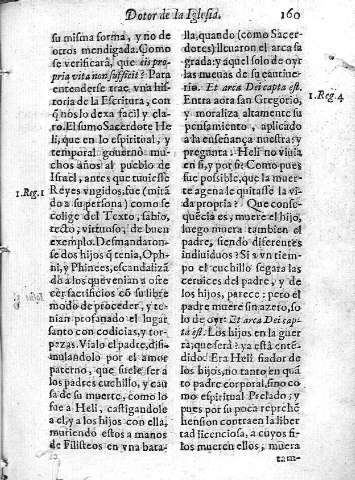 Dotor de la Iglesia. 160
su misma forma, y no de
otros mendigada. Como
se verificarà, que eis pro-
pria vita non sufficit? Para
entenderse trae vna his-
toria de la Escritura, con
q̃ nos lo dexa facil y cla-
ro. El sumo Sacerdote He
li, que en lo espiritual, y
temporal gouernò mu-
chos años al pueblo de
Israel, antes que tuuiesse
1.Reg.1
Reyes vngidos, fue (mirã
do a su persona) como se
colige del Texto, sabio,
recto, virtuoso, de buen
exemplo. Desmandaron-
se dos hijos q̃ tenia, Oph-
ni, y Phinees, escandalizã
dò a los que venian a ofre
cer sacrificios cõ su libre
modo de proceder, y te-
nian profanado el lugar
santo con codicias, y tor-
pezas. Vialo el padre, disi-
mulandolo por el amor
paterno, que suele ser a
los padres cuchillo, y cau
sa de su muerte, como lo
fue a Heli, castigandole
a el, y a los hijos con ella,
muriendo estos a manos
de Filisteos en vna bata-
lla, quando (como Sacer-
dotes) lleuaron el arca sa
grada: y aquel solo de oyr
las nueuas de su cautiue-
rio. Et arca Dei capta est.
1.Reg.4
Entra aora san Gregorio,
y moraliza altamente su
pensamiento, aplicado
a la enseñança nuestra: y
pregunta. Heli no viuia
en si, y por si? Como pues
fue possible, que la muer-
te agena le quitasse la vi-
da propria? Que conse-
quẽcia es, muere el hijo,
luego muera tambien el
padre, siendo diferentes
indiuiduos? Si a vn tiem-
po el cuchillo segara las
ceruices del padre, y de
los hijos, parece: pero el
padre muere sin azero, so-
lo de oyr: Et arca Dei cap-
ta est. Los hijos en la guer
ra; que serà? ya està enten
dido. Era Heli fiador de
los hijos, no tanto en quã
to padre corporal, sino co
mo espiritual Prelado; y
pues por su poca reprehẽ
hension contraen la liber
tad licenciosa, a cuyos fi-
los mueren ellos, muera
tam-